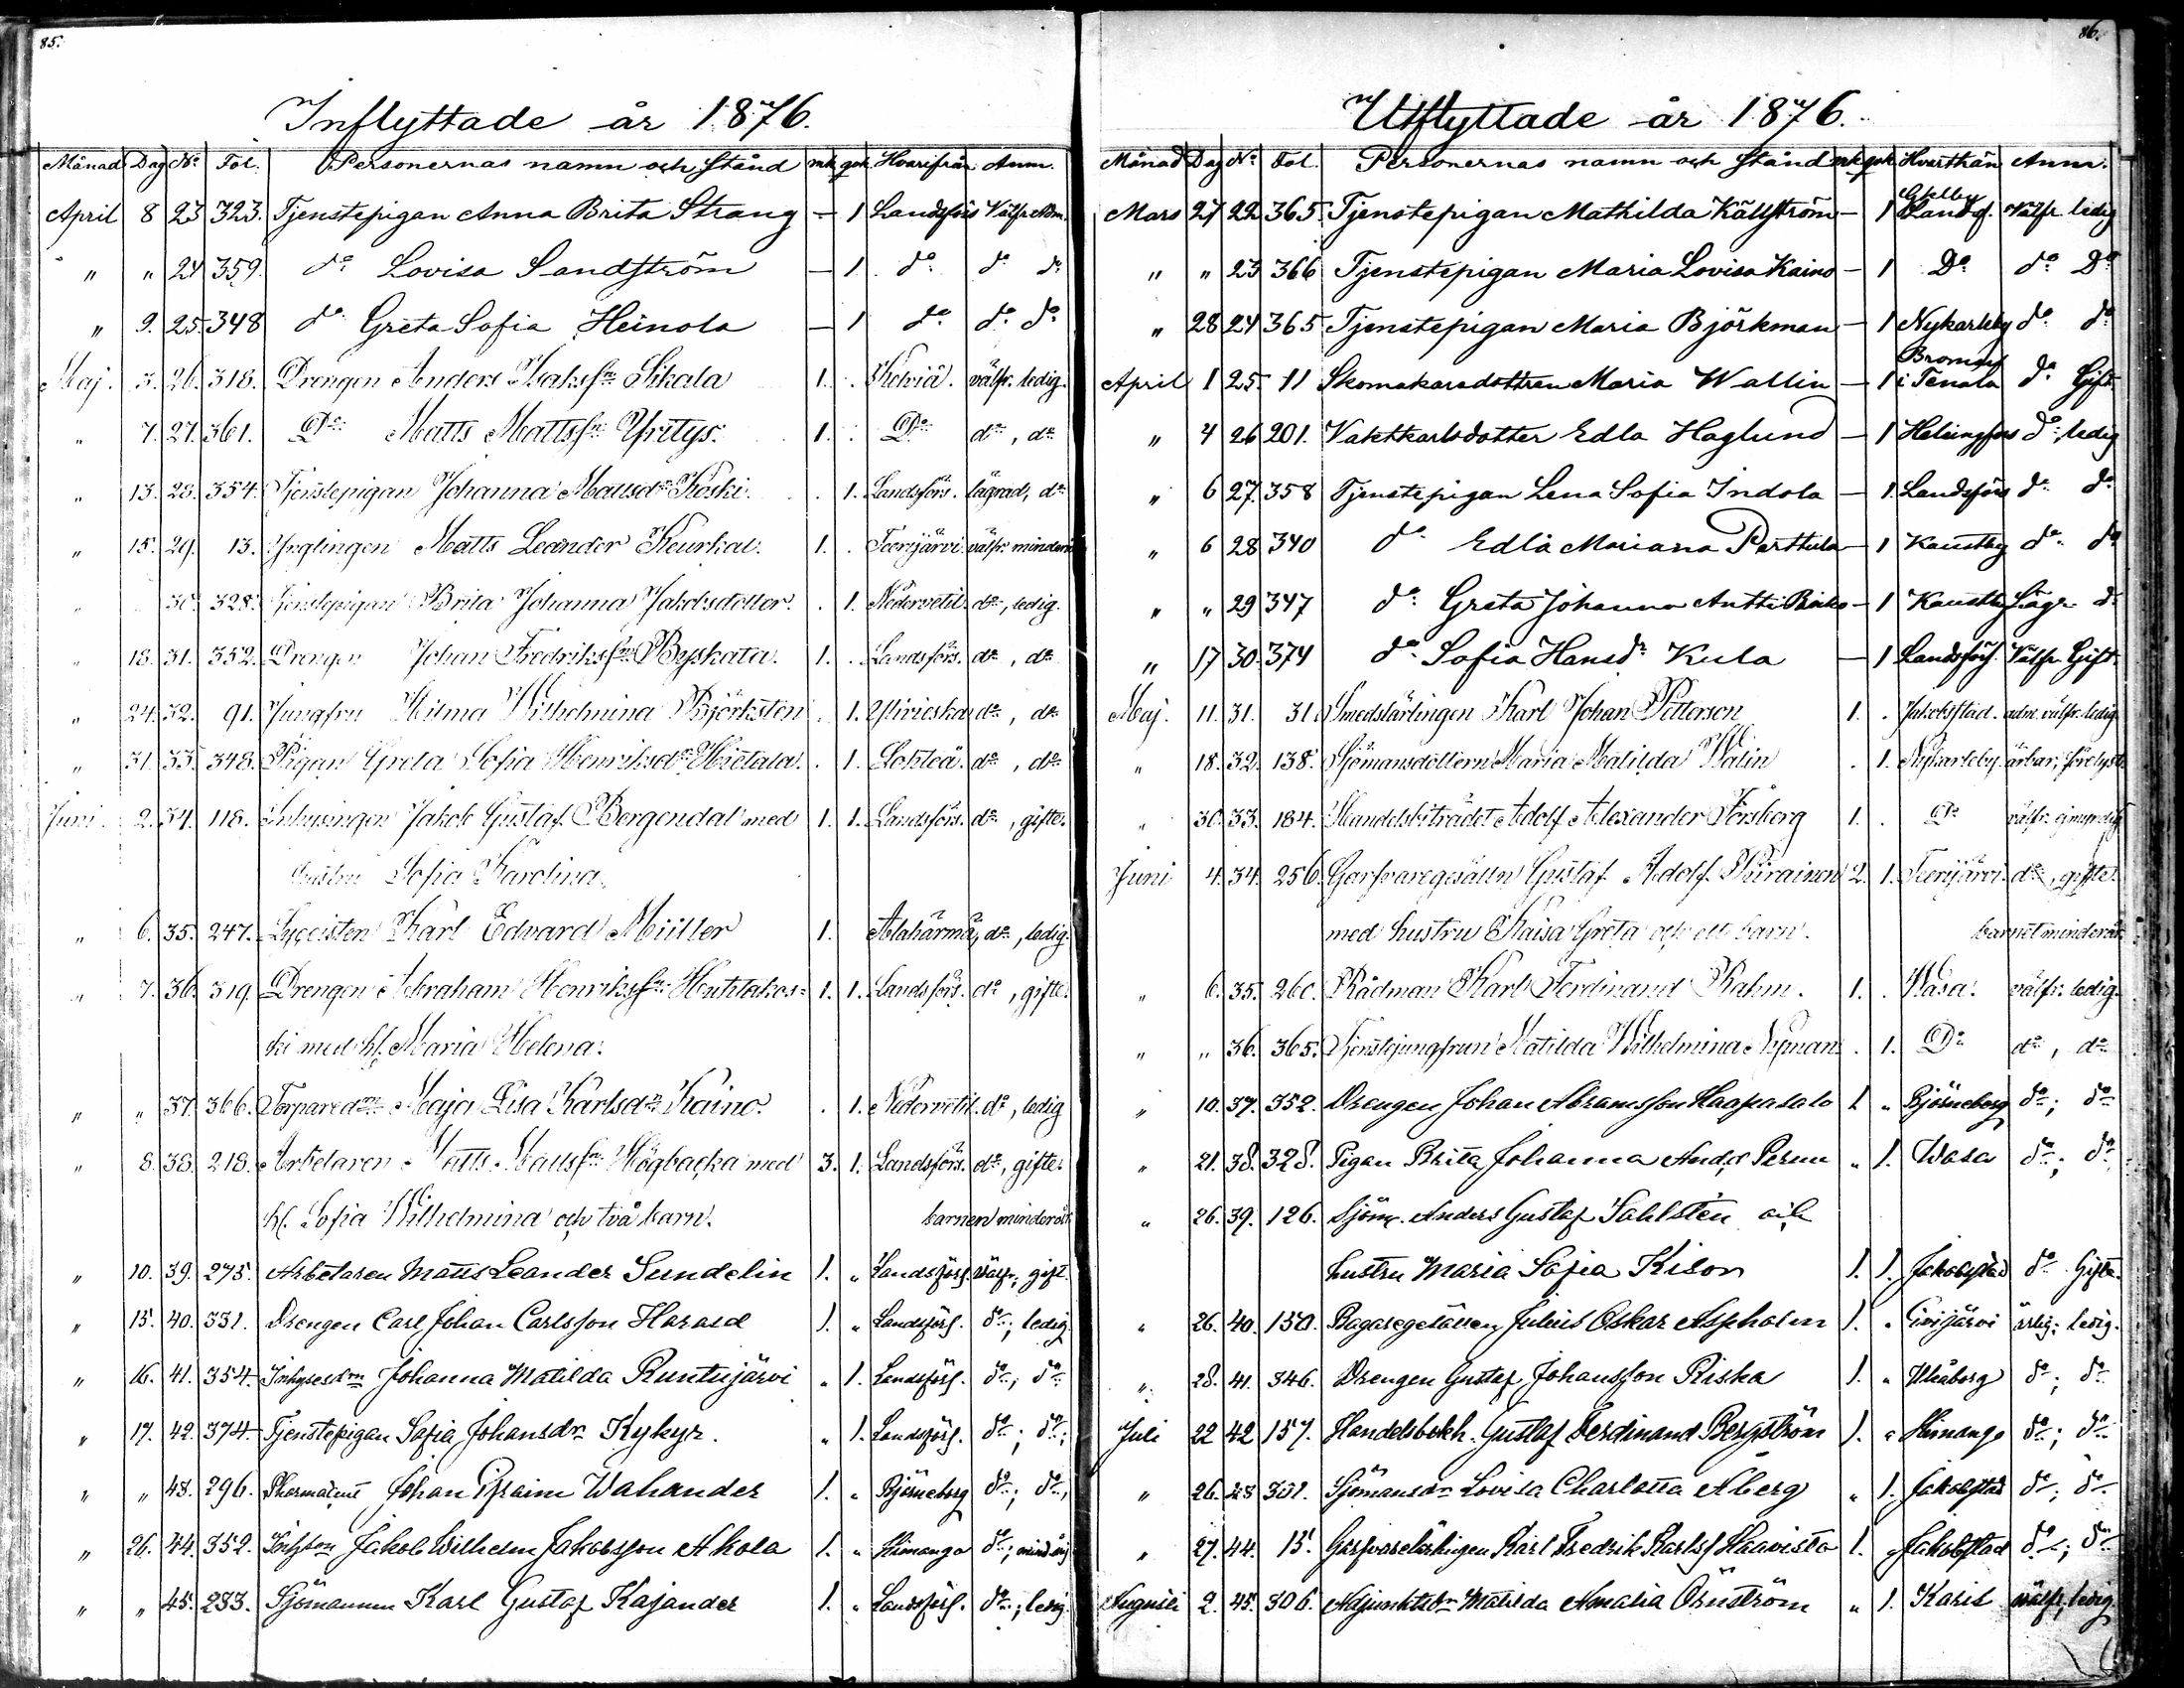 85.
Inflyttade år 1876.
Månad Dag No Fol. Personernas namn och stånd mk qvk Hvarifrån Anm.
April 8 23 323. Tjenstepigan Anna Brita Strang — 1 Landsförs Välfr.
" " 24 359. do Lovisa Sandström — 1 do do do
" 9. 25. 348 do Greta Sofia Heinola — 1 do do do
Maj. 3. 26. 318. Drengen Anders Isaksson Sikala 1. . Kelviå. välfr. ledig.
" 7. 27. 361. Do Matts Mattsson Yritys. 1. . Do do, do
" 13. 28. 354. Tjenstepigan Johanna Mattsdr Koski. . 1. Landsförs. lägrad, do
" 15. 29. 13. Ynglingen Matts Leander Keurkat. 1. . Teerijärvi välfr. minderå
" 30. 328. Tjenstepigan Brita Johanna Jakobsdotter. . 1. Nedervetil do, ledig.
" 18. 31. 352. Drengen Johan Fredriksson Byskata. 1. . Landsförs. do, do
" 24. 32. 91. Jungfru Hilma Wilhelmina Björkstén . 1. Ylivieska do, do
" 31. 33. 348. Pigan Greta Sofia Henriksdr Hietala. . 1. Lohteå. do, do
Juni. 2. 34. 118. Inhysingen Jakob Gustaf Bergendal med 1. 1. Landsförs. do, gifte.
hustru Sofia Karolina.
" 6. 35. 247. Lyceisten Karl Edvard Müller 1. Alahärmä, do, ledig.
" 7. 36. 319. Drengen Abraham Henriksson Huhtakos- 1. 1. Landsförs. do, gifte.
ki med h. Maria Helena.
" " 37. 366. Torparedr Maja Lisa Karlsdr Kaino. . 1. Nedervetil. do, ledig
" 8. 38. 218. Arbetaren Matts Mattsson Högbacka med 3. 1. Landsförs. do, gifte.
h. Sofia Wilhelmina och två barn. barnen minderår
" 10. 39. 275. Arbetaren Matts Leander Sundelin 1. " Landsförs. välfr; gift.
" 15. 40. 331. Drengen Carl Johan Carlsson Harald 1. " Landsförs. do; ledig.
" 16. 41. 354. Inhysesdr Johanna Matilda Runtujärvi " 1. Landsförs. do; do
" 17. 42. 374 Tjenstepigan Sofia Johansdr Kykyr. " 1. Landsförs. do; do;
" " 43. 296. Johan Efraim Wahander 1. " Björneborg do; do,
" 26. 44. 352. Jakob Wilhelm Jakobsson Ahola 1. " Himango do; mind.årig
" " 45. 283. Sjömannen Karl Gustaf Kajander 1. " Landsförs. do; ledig.
86.
Utflyttade år 1876.
Månad Dag No Fol. Personernas namn och stånd mk qvk Hvarthän Anm.
Mars 27 22 365. Tjenstepigan Mathilda Källström — 1 Landsf. Välfr. ledig
" " 23 366 Tjenstepigan Maria Lovisa Kaino — 1 Do do Do
" 28 24 365 Tjenstepigan Maria Björkman — 1 Nykarleby do do
April 1 25. 11 Skomakaredottren Maria Wallin — 1 Bromarf i Tenala do Gift
" 4 26 201. Vaktkarlsdotter Edla Haglund — 1 Helsingfors do ledig
" 6 27. 358 Tjenstepigan Lena Sofia Indola — 1. Landsförs do do
" 6 28 340 do Edla Mariana Perttula — 1 Kaustby do do
" " 29 347 do Greta Johanna Antti — 1 Kaustby Lägr. do
" 17 30. 374 do Sofia Hansdr Kula — 1 Landsförs. Välfr. Gift.
Maj. 11. 31. 31. Smedslärlingen Karl Johan Pettersson 1. . Jakobstad. adm. välfr. ledig
" 18. 32. 138. Sjömansdottern Maria Matilda Walin . 1. Nykarleby. ärbar, förelyst.
" 30. 33. 184. Handelsbiträdet Adolf Alexander Forsberg 1. . Do välfr.
Juni 4. 34. 256. Garfvaregesälln Gustaf Adolf Piirainen 2. 1. Teerijärvi. do, gifte.
med hustru Kaisa Greta och ett barn. barnet minderår.
" 6. 35. 260. Rådman Karl Ferdinand Rahm. 1. . Wasa. välfr. ledig.
" " 36. 365. Tjenstejungfrun Matilda Wilhelmina Nyman . 1. Do do, do
" 10. 37. 352. Drengen Johan Abramsson Haapasalo 1 " Björneborg do; do
" 21. 38. 328. Pigan Brita Johanna Andsd Perun " 1. Wasa do; do
" 26. 39. 126. Sjöm. Anders Gustaf Sahlstén och
hustru Maria Sofia Kison 1. 1. Jakobstad do Gifte.
" 26. 40. 150. Bagaregesällen Julius Oskar Aspholm 1. " Evijärvi ärlig; ledig.
" 28. 41. 346. Drengen Gustaf Johansson Riska 1. " Uleåborg do; do
Juli 22 42 157. Handelsbokh. Gustaf Ferdinand Bergström 1. " Himango do; do
" 26. 43 301. Sjömansdr Lovisa Charlotta Åberg " 1. Jakobstad do; do
" 27. 44. 15. Garfvarelärlingen Karl Fredrik Karlss Haavisto 1. " Jakobstad do; do
Augusti 2. 45. 306. Adjunktsdr Matilda Amalia Örnström " 1. Karis välfr; ledig.